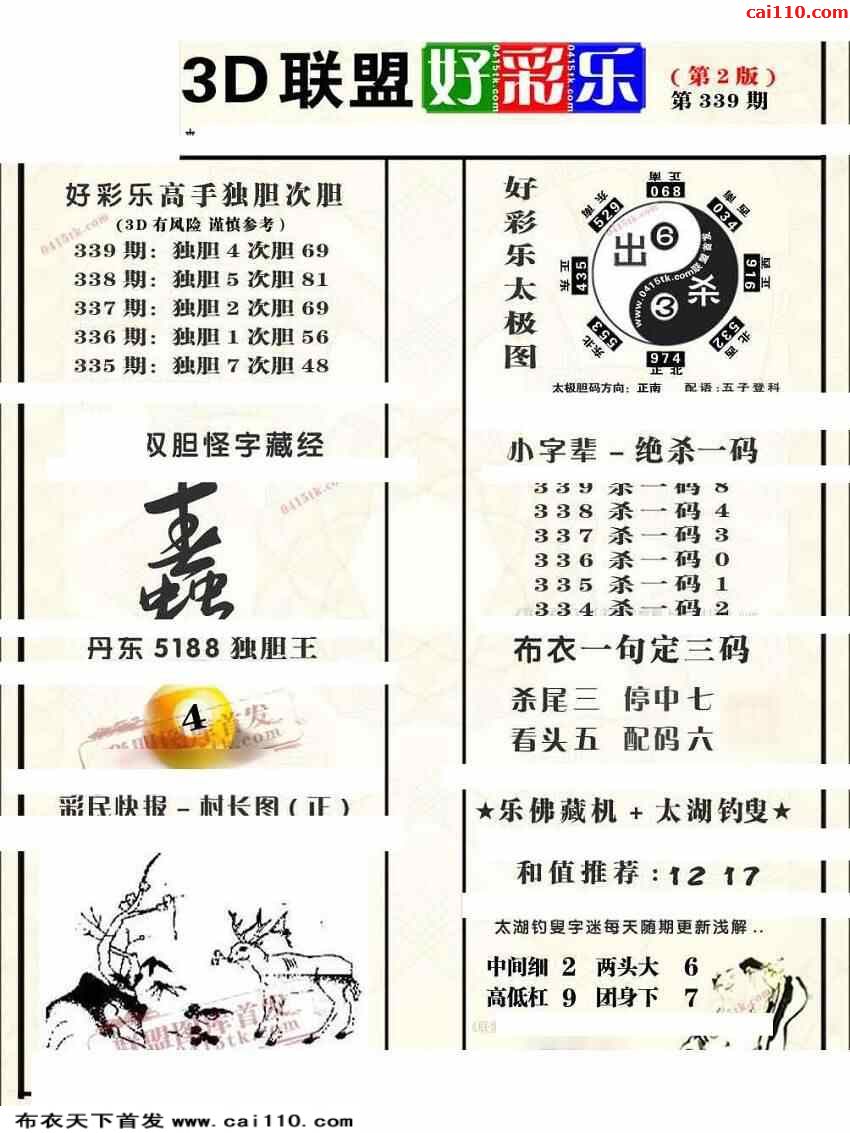 cai110.com
3D联盟好彩乐
(第2版)
第339期
好彩乐高手独胆次胆
(3D有风险 谨慎参考)
339期: 独胆4次胆69
338期: 独胆5次胆81
337期: 独胆2次胆69
336期: 独胆1次胆56
335期: 独胆7次胆48
好彩乐太极图
正南
068
西南
034
正西
916
西北
532
正北
974
东北
553
正东
435
东南
529
出6
③杀
www.0415tk.com联盟首发
太极胆码方向: 正南 配语:五子登科
双胆怪字藏经
0415tk.com
小字辈-绝杀一码
339杀一码8
338杀一码4
337杀一码3
336杀一码0
335杀一码1
334杀一码2
丹东5188独胆王
4
布衣一句定三码
杀尾三 停中七
看头五 配码六
彩民快报-村长图(正)
★乐佛藏机+太湖钓叟★
和值推荐:12 17
太湖钓叟字迷每天随期更新浅解..
中间细 2 两头大 6
高低杠 9 团身下 7
联盟图库首发
0415tk.com
布衣天下首发 www.cai110.com